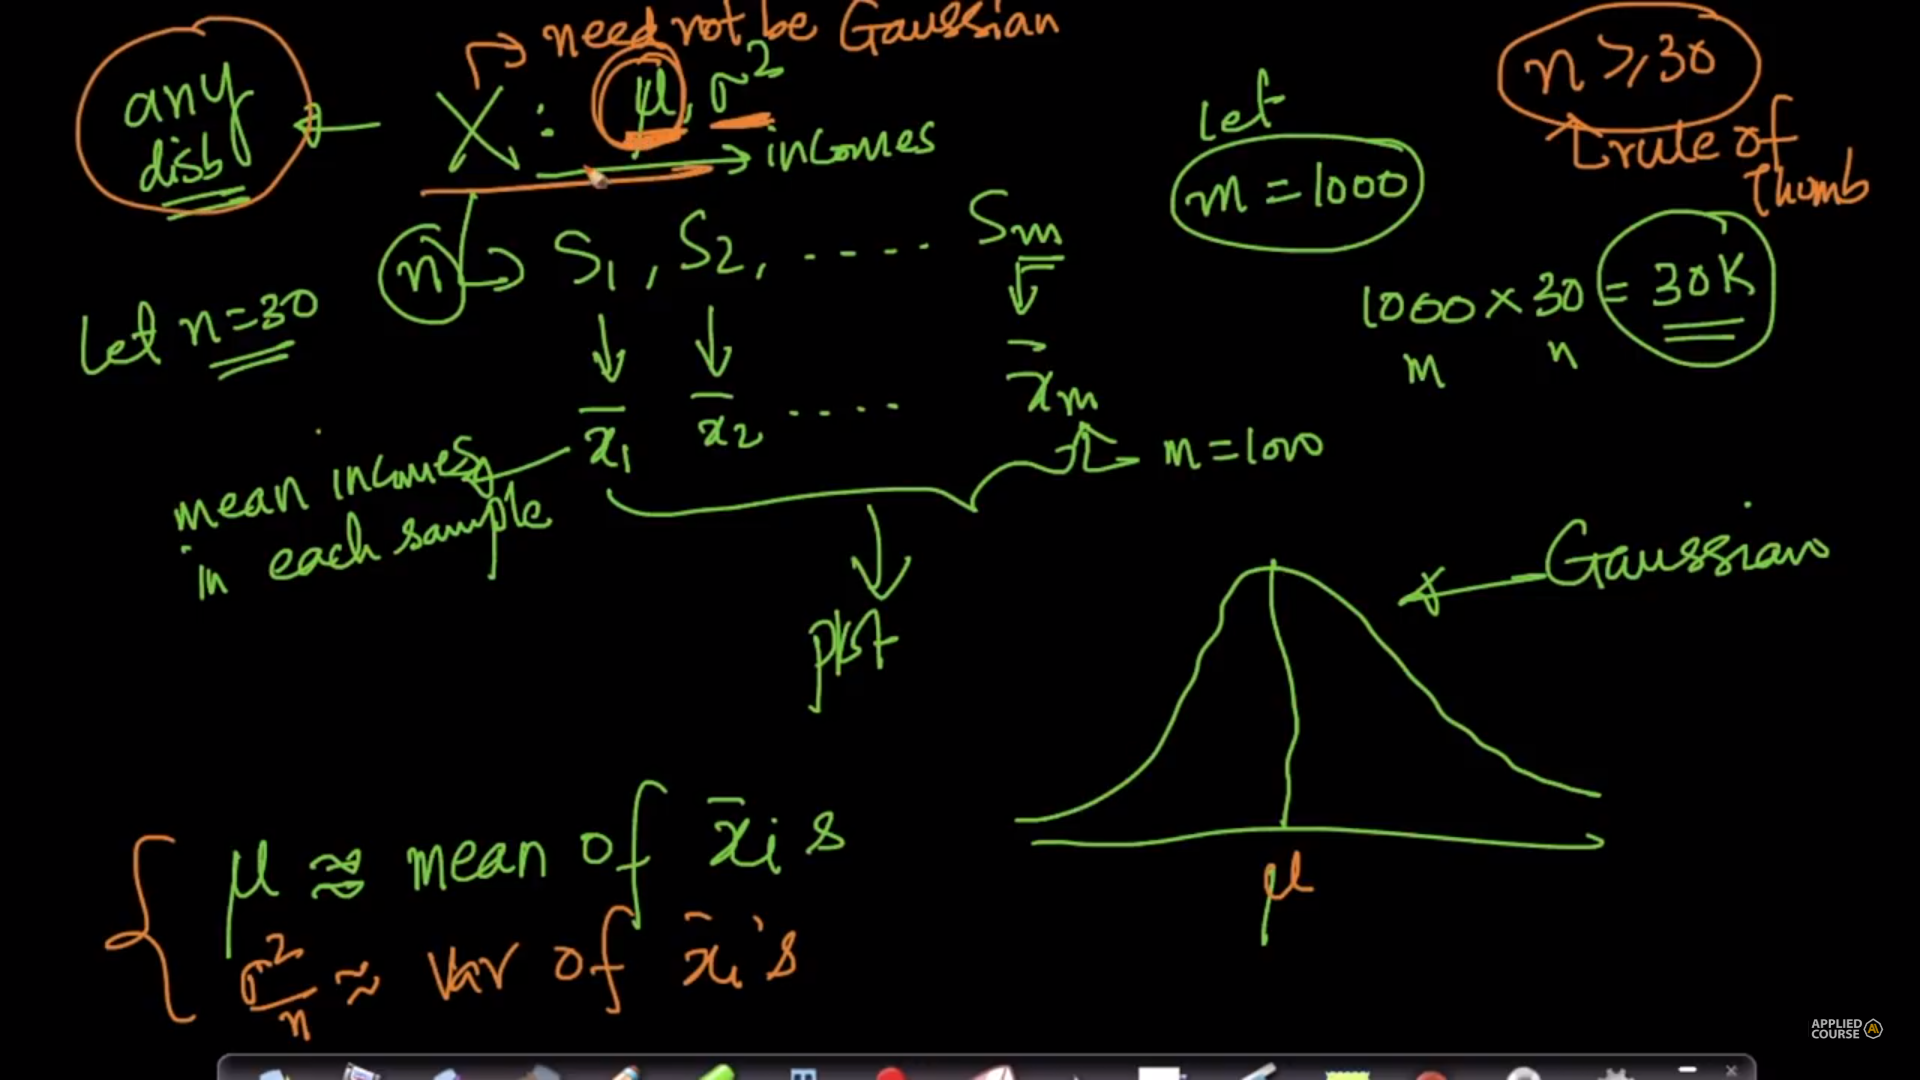 need not be Gaussian
any
disb
X : μ, σ²
incomes
Let
m = 1000
n ≥ 30
rule of
Thumb
n
S1, S2, ..... Sm
Let n=30
1000 × 30 = 30K
m n
x̄1 x̄2 .... x̄m
m = 1000
mean incomes
in each sample
plot
Gaussian
μ
μ ≈ mean of x̄i s
σ²/n ≈ var of x̄i's
APPLIED
COURSE